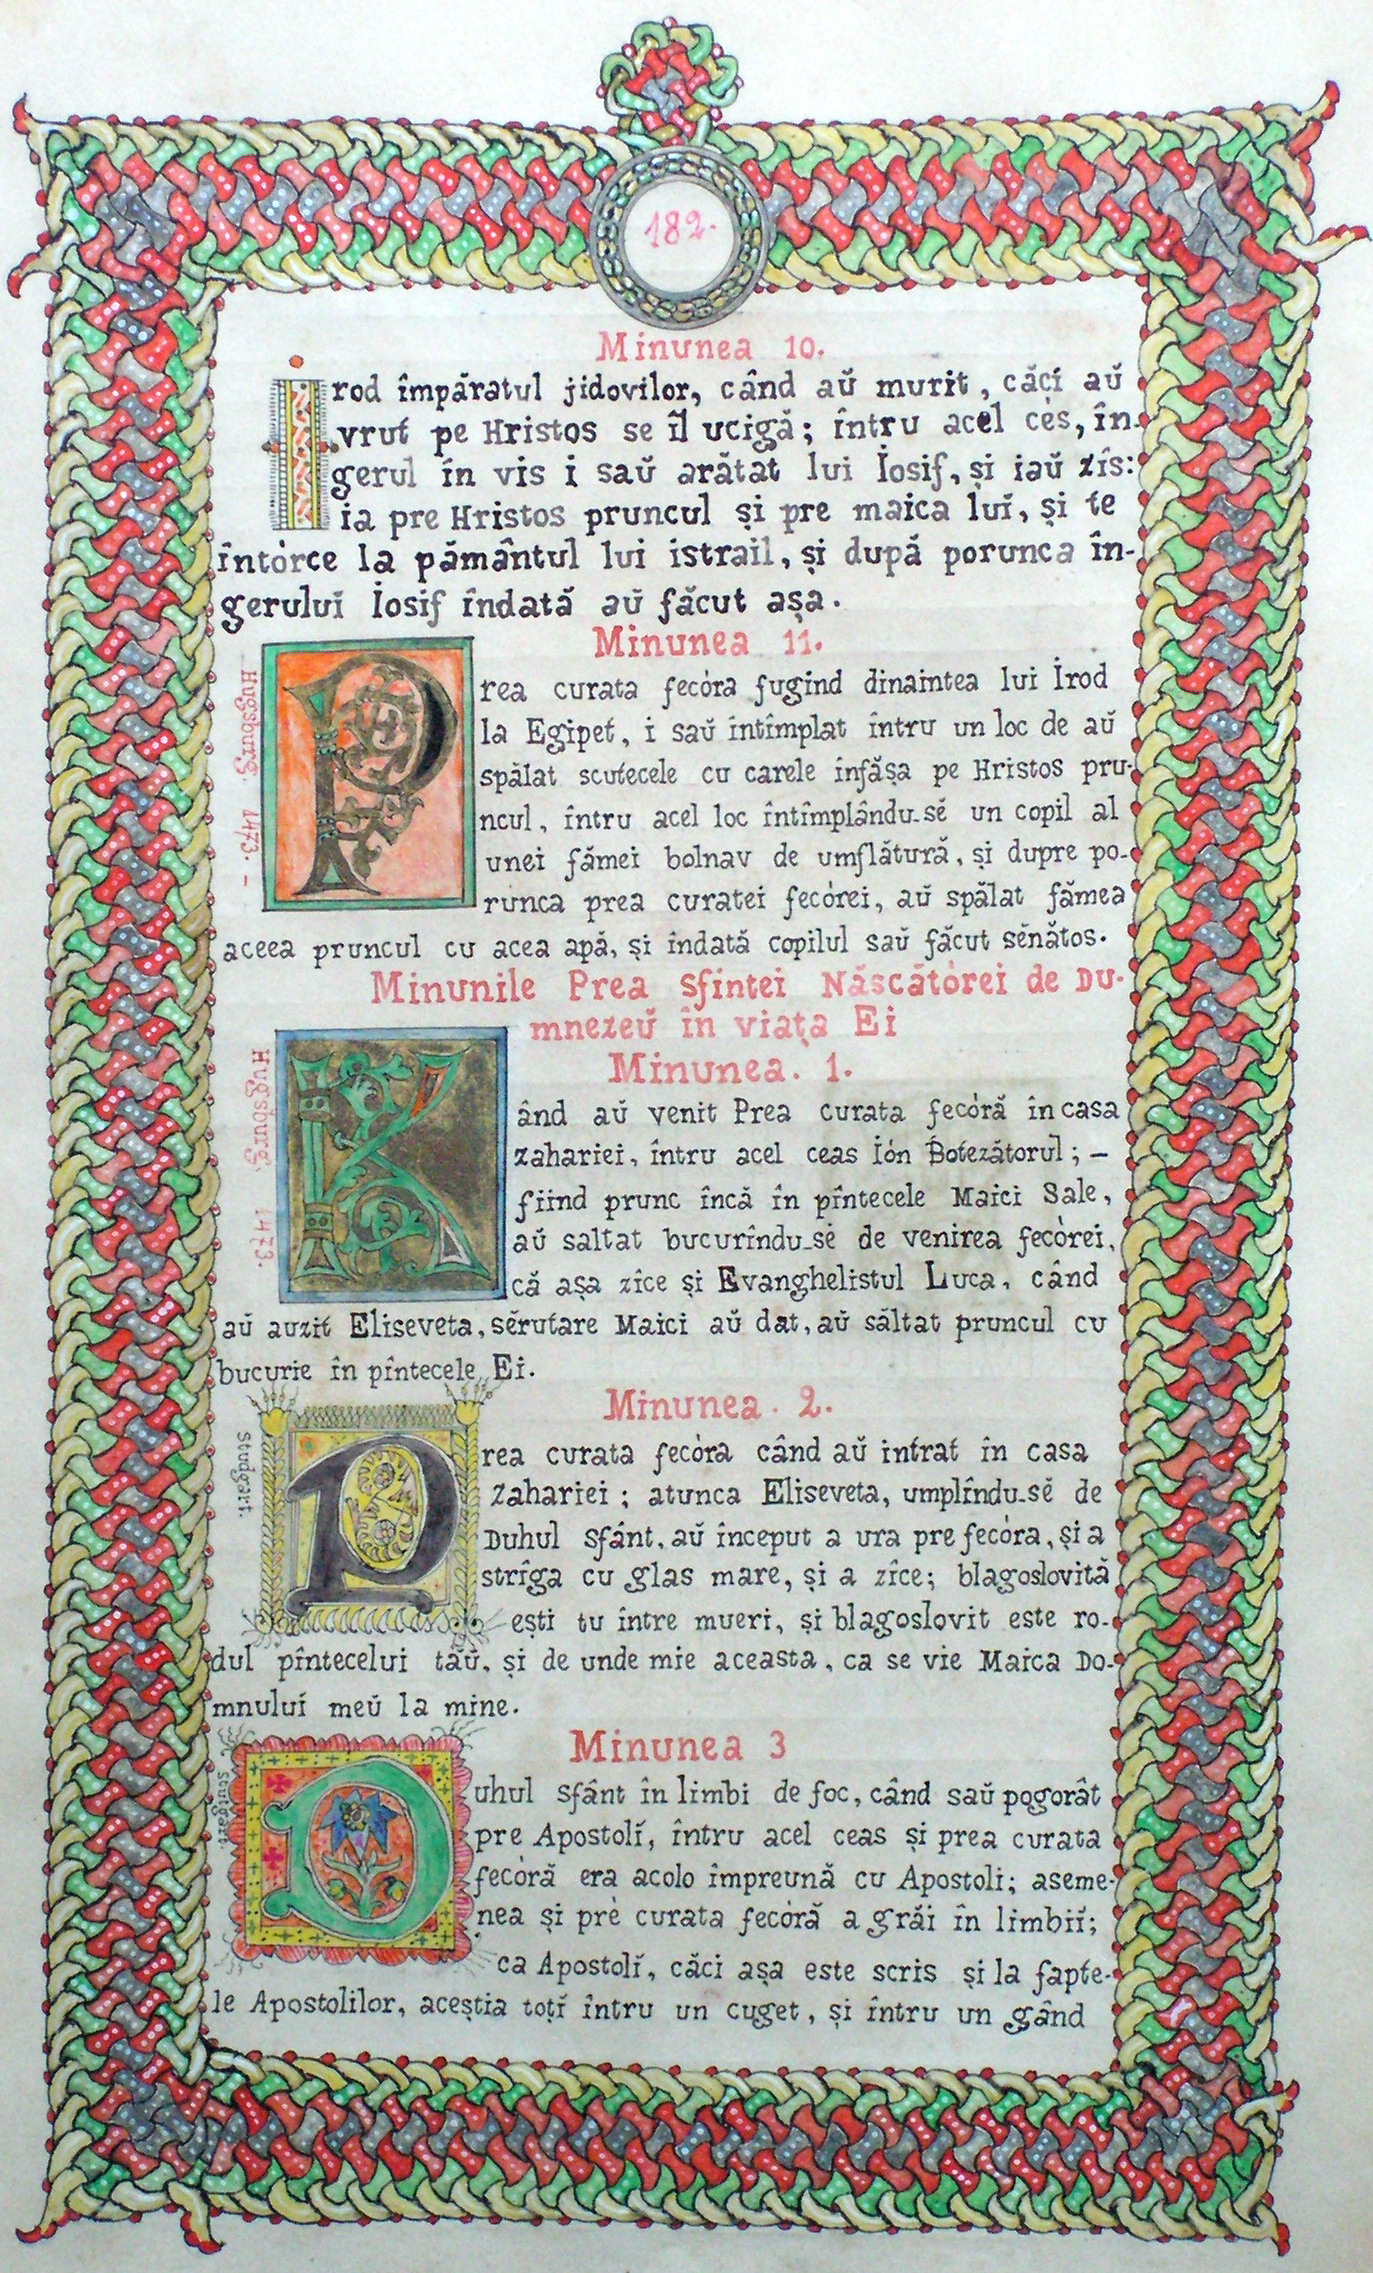 182.
Minunea 10.
Irod împăratul jidovilor, când aŭ murit, căcĭ aŭ
vrut pe Hristos se îl ucigă; întru acel ces, în-
gerul în vis i saŭ arătat lui Iosif, și iaŭ zîs:
ia pre Hristos pruncul și pre maica luĭ, și te
întórce la pământul lui istrail, și după porunca în-
geruluĭ Iosif îndată aŭ făcut așa.
Minunea 11.
Hugsburg 1473.-
Prea curata fecóra fugind dinaintea lui Irod
la Egipet, i saŭ întîmplat întru un loc de aŭ
spălat scutecele cu carele înfășa pe Hristos pru-
ncul, întru acel loc întîmplându-sĕ un copil al
unei fămei bolnav de umflătură, și dupre po-
runca prea curatei fecórei, aŭ spălat fămea
aceea pruncul cu acea apă, și îndată copilul saŭ făcut sĕnătos.
Minunile Prea Sfintei Născătórei de Du-
mnezeŭ în viața Ei
Minunea. 1.
Hugsburg, 1473.
Kând aŭ venit Prea curata fecóră în casa
zahariei, întru acel ceas Ión Botezătorul; –
fiind prunc încă în pîntecele Maici Sale,
aŭ saltat bucurîndu-sĕ de venirea fecórei,
că așa zîce și Evanghelistul Luca, când
aŭ auzit Eliseveta, sĕrutare Maici aŭ dat, aŭ săltat pruncul cu
bucurie în pîntecele Ei.
Minunea. 2.
Studgart.
Prea curata fecóra când aŭ intrat în casa
Zahariei; atunca Eliseveta, umplîndu-sĕ de
Duhul sfânt, aŭ început a ura pre fecóra, și a
strîga cu glas mare, și a zîce; blagoslovită
ești tu între mueri, și blagoslovit este ro-
dul pîntecelui tăŭ, și de unde mie aceasta, ca se vie Maica Do-
mnuluĭ meŭ la mine.
Minunea 3
Stutgart.
Duhul sfânt în limbi de foc, când saŭ pogorât
pre Apostolĭ, întru acel ceas și prea curata
fecóră era acolo împreună cu Apostoli; aseme-
nea și pré curata fecóră a grăi în limbiĭ;
ca Apostolĭ, căci așa este scris și la fapte-
le Apostolilor, aceștia toțĭ întru un cuget, și întru un gând